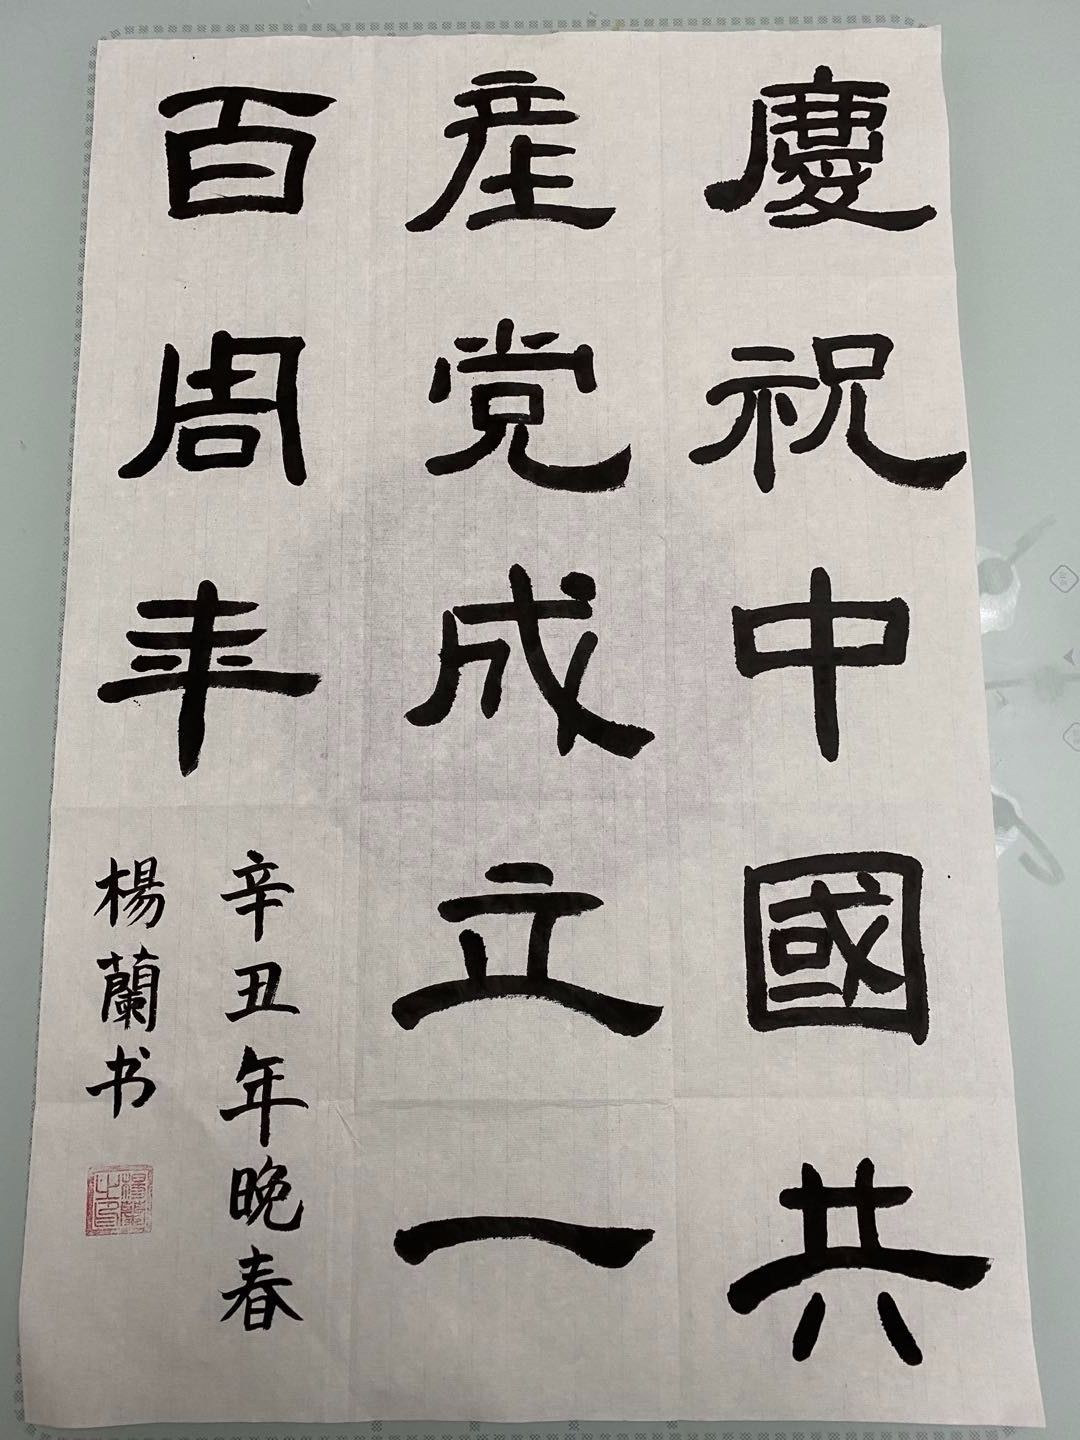 慶祝中國共
産党成立一
百周年
辛丑年晚春
楊蘭书
楊蘭之印